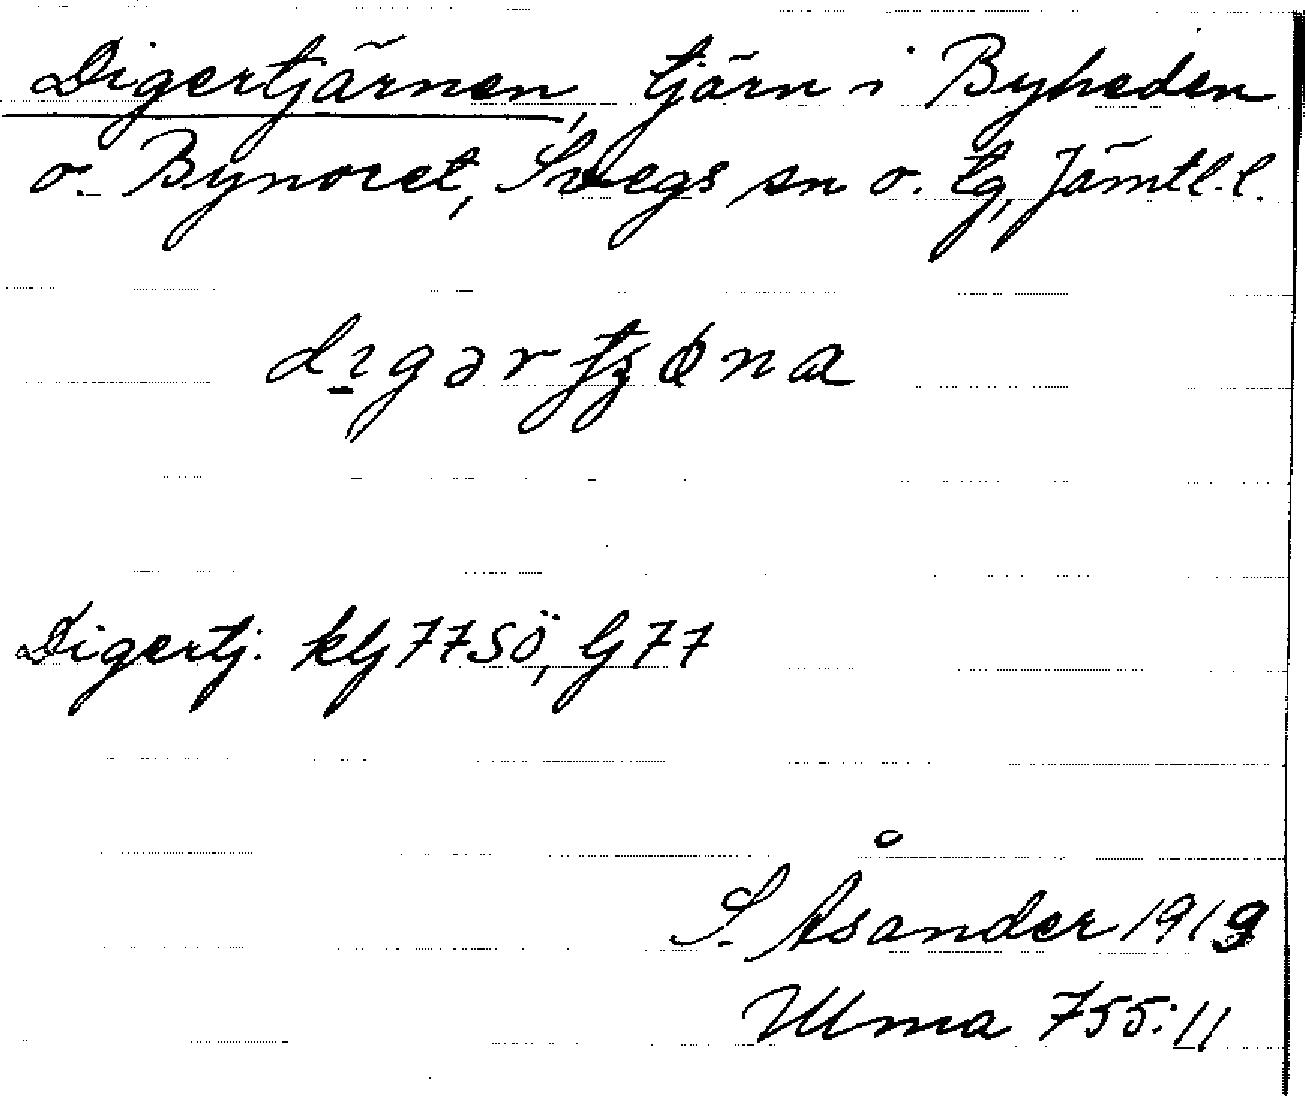 Digertjärnen, tjärn i Byheden
o. Bynoret, Svegs sn o. tg, Jämtl. l.
dı̱gərtȷøna
Digertj. klj 77SÖ, lj 77
S. Åsander 1919
Ulma 755:11